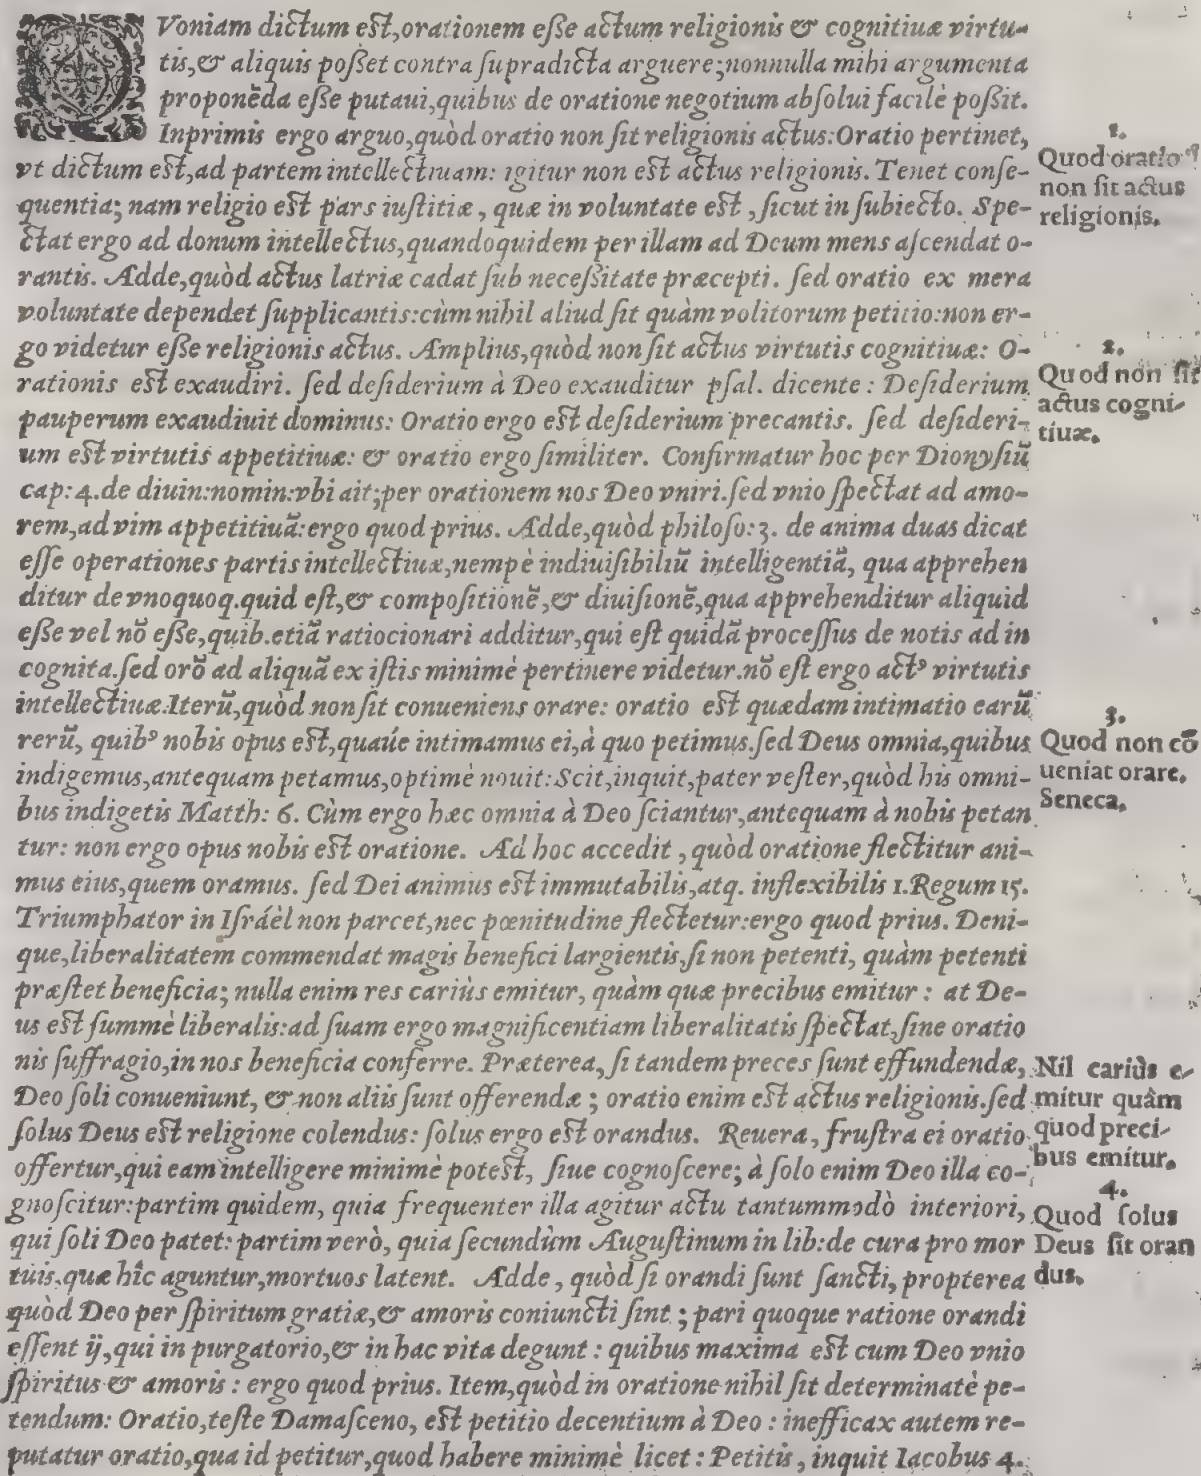 QVoniam dictum est,orationem eſſe actum religionis & cognitiuæ virtu-
tis,& aliquis poſſet contra ſupradicta arguere;nonnulla mihi argumenta
proponēda eſſe putaui,quibus de oratione negotium abſolui facilè poſſit.
Inprimis ergo arguo,quòd oratio non ſit religionis actus:Oratio pertinet,
vt dictum est,ad partem intellectiuam: igitur non est actus religionis. Tenet conſe-
quentia; nam religio est pars iuſtitiæ, quæ in voluntate est, ſicut in ſubiecto. Spe-
ctat ergo ad donum intellectus,quandoquidem per illam ad Deum mens aſcendat o-
rantis. Adde,quòd actus latriæ cadat ſub neceſſitate præcepti. ſed oratio ex mera
voluntate dependet ſupplicantis:cùm nihil aliud ſit quàm volitorum petitio:non er-
go videtur eſſe religionis actus. Amplius,quòd non ſit actus virtutis cognitiuæ: O-
rationis est exaudiri. ſed deſiderium à Deo exauditur pſal. dicente: Deſiderium
pauperum exaudiuit dominus: Oratio ergo est deſiderium precantis. ſed deſideri-
um est virtutis appetitiuæ: & oratio ergo ſimiliter. Confirmatur hoc per Dionyſiū
cap:4.de diuin:nomin:vbi ait;per orationem nos Deo vniri.ſed vnio ſpectat ad amo-
rem,ad vim appetitiuā:ergo quod prius. Adde,quòd philoſo:3. de anima duas dicat
eſſe operationes partis intellectiuæ,nempè indiuiſibiliū intelligentiā, qua apprehen
ditur de vnoquoq.quid eſt,& compoſitionē,& diuiſionē,qua apprehenditur aliquid
eſſe vel nō eſſe,quib.etiā ratiocionari additur,qui eſt quidā proceſſus de notis ad in
cognita.ſed orō ad aliquā ex iſtis minimè pertinere videtur.nō eſt ergo actꝰ virtutis
intellectiuæ.Iterū,quòd non ſit conueniens orare: oratio est quædam intimatio earū
rerū, quibꝰ nobis opus est,quaúe intimamus ei,à quo petimus.ſed Deus omnia,quibus
indigemus,antequam petamus,optimè nouit:Scit,inquit,pater veſter,quòd his omni-
bus indigetis Matth: 6. Cùm ergo hæc omnia à Deo ſciantur,antequam à nobis petan
tur: non ergo opus nobis est oratione. Ad hoc accedit, quòd oratione flectitur ani-
mus eius,quem oramus. ſed Dei animus est immutabilis,atq. inflexibilis 1.Regum 15.
Triumphator in Iſráèl non parcet,nec pœnitudine flectetur:ergo quod prius. Deni-
que,liberalitatem commendat magis benefici largientis,ſi non petenti, quàm petenti
præſtet beneficia; nulla enim res cariùs emitur, quàm quæ precibus emitur: at De-
us est ſummè liberalis:ad ſuam ergo magnificentiam liberalitatis ſpectat,ſine oratio
nis ſuffragio,in nos beneficia conferre. Præterea, ſi tandem preces ſunt effundendæ,
Deo ſoli conueniunt, & non aliis ſunt offerendæ; oratio enim est actus religionis.ſed
ſolus Deus est religione colendus: ſolus ergo est orandus. Reuera, fruſtra ei oratio
offertur,qui eam intelligere minimè potest, ſiue cognoſcere; à ſolo enim Deo illa co-
gnoſcitur:partim quidem, quia frequenter illa agitur actu tantummodò interiori,
qui ſoli Deo patet: partim verò, quia ſecundùm Auguſtinum in lib:de cura pro mor
tuis,quæ hîc aguntur,mortuos latent. Adde, quòd ſi orandi ſunt ſancti, propterea
quòd Deo per ſpiritum gratiæ,& amoris coniuncti ſint; pari quoque ratione orandi
eſſent ij,qui in purgatorio,& in hac vita degunt: quibus maxima est cum Deo vnio
ſpiritus & amoris: ergo quod prius. Item,quòd in oratione nihil ſit determinatè pe-
tendum: Oratio,teſte Damaſceno, est petitio decentium à Deo: inefficax autem re-
putatur oratio,qua id petitur,quod habere minimè licet: Petitis, inquit Iacobus 4.
1.
Quod oratio
non ſit actus
religionis.
2.
Quod non ſit
actus cogni-
tiuæ.
3.
Quod non cō
ueniat orare.
Seneca.
Nil cariùs e-
mitur quàm
quod preci-
bus emitur.
4.
Quod ſolus
Deus ſit oran
dus.